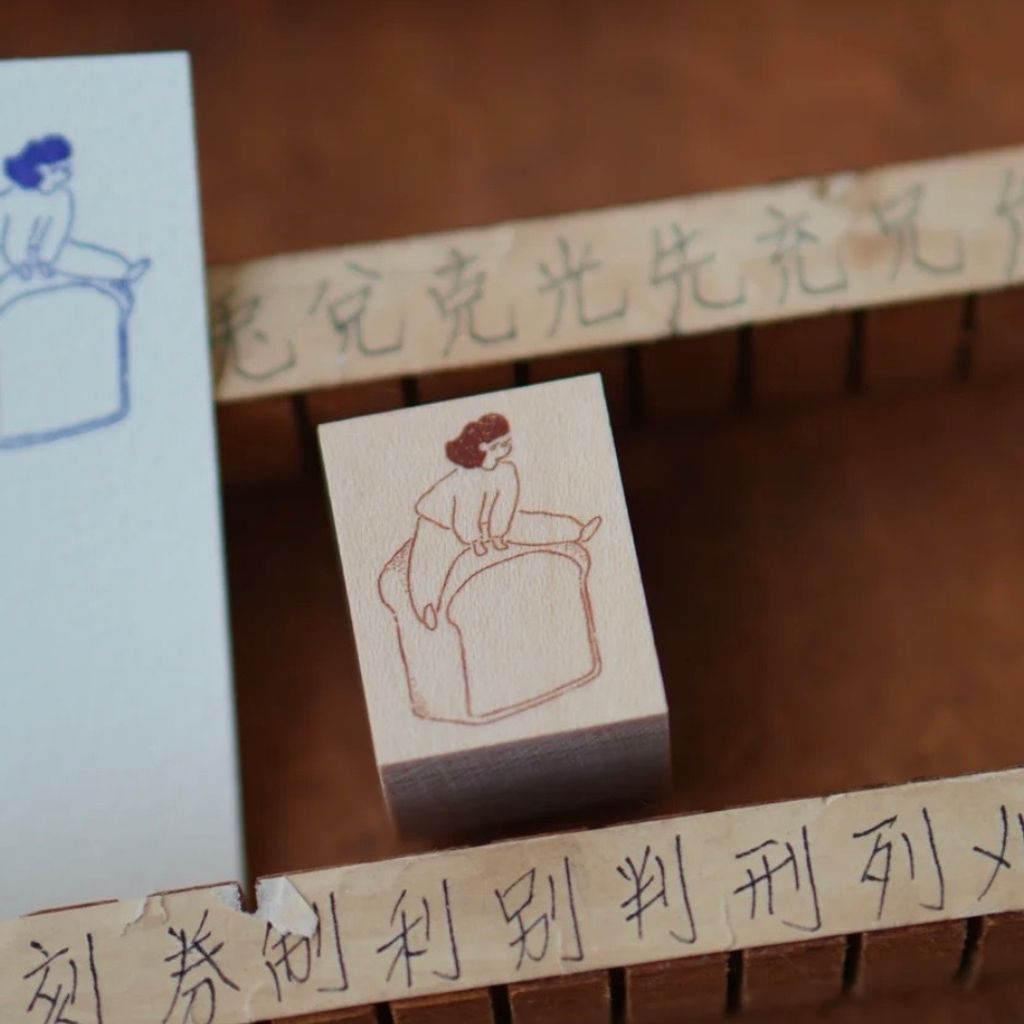 兎兌克光先充兄
刻券制利別判刑列